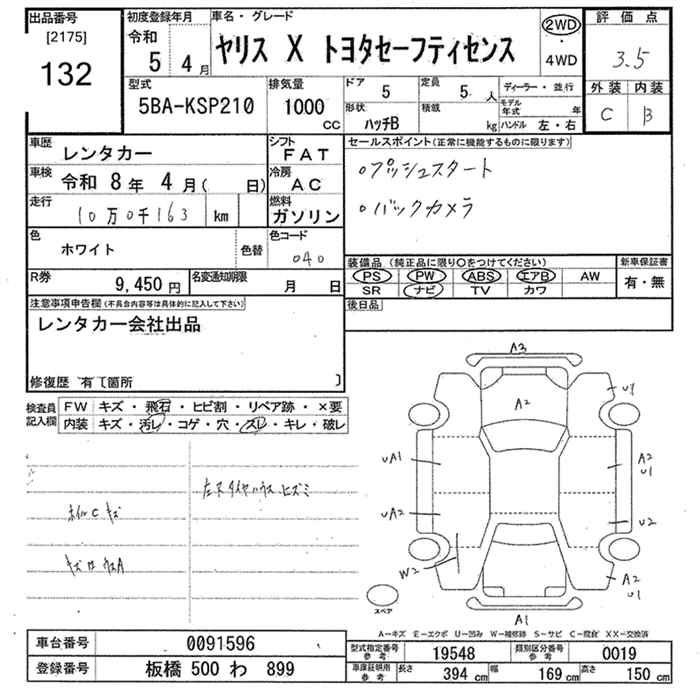 出品番号
[2175]
132
初度登録年月
令和
5 4月
車名・グレード
ヤリス X トヨタセーフティセンス
2WD
・
4WD
評価点
3.5
外装 内装
C B
型式
5BA-KSP210
排気量
1000
CC
ドア
5
定員
5人
形状
ハッチB
積載
kg
ディーラー・並行
モデル年式 年
ハンドル 左・右
車歴
レンタカー
シフト
FAT
車検 令和 8年 4月( 日)
冷房
AC
走行
10万0千163 km
燃料
ガソリン
色
ホワイト
色替
色コード
040
R券
9,450円
名変通知期限
月 日
セールスポイント(正常に機能するものに限ります)
○プッシュスタート
○バックカメラ
装備品(純正品に限り○をつけてください)
PS PW ABS エアB AW
SR ナビ TV カワ
新車保証書
有・無
後日品
注意事項申告欄(不具合内容等は具体的に記入して下さい)
レンタカー会社出品
修復歴 有〔箇所 〕
検査員記入欄
FW キズ・飛石・ヒビ割・リペア跡・×要
内装 キズ・汚レ・コゲ・穴・スレ・キレ・破レ
ホイルC キズ
A3
A2
U1
UA1
A2
U1
UA2
U2
W2
A2
U1
A1
スペア
A-キズ E-エクボ U-凹み W-補修跡 S-サビ C-腐食 XX-交換済
車台番号 0091596
登録番号 板橋 500 わ 899
型式指定番号参考 19548
類別区分番号参考 0019
車庫証明用参考 長さ 394 cm 幅 169 cm 高さ 150 cm